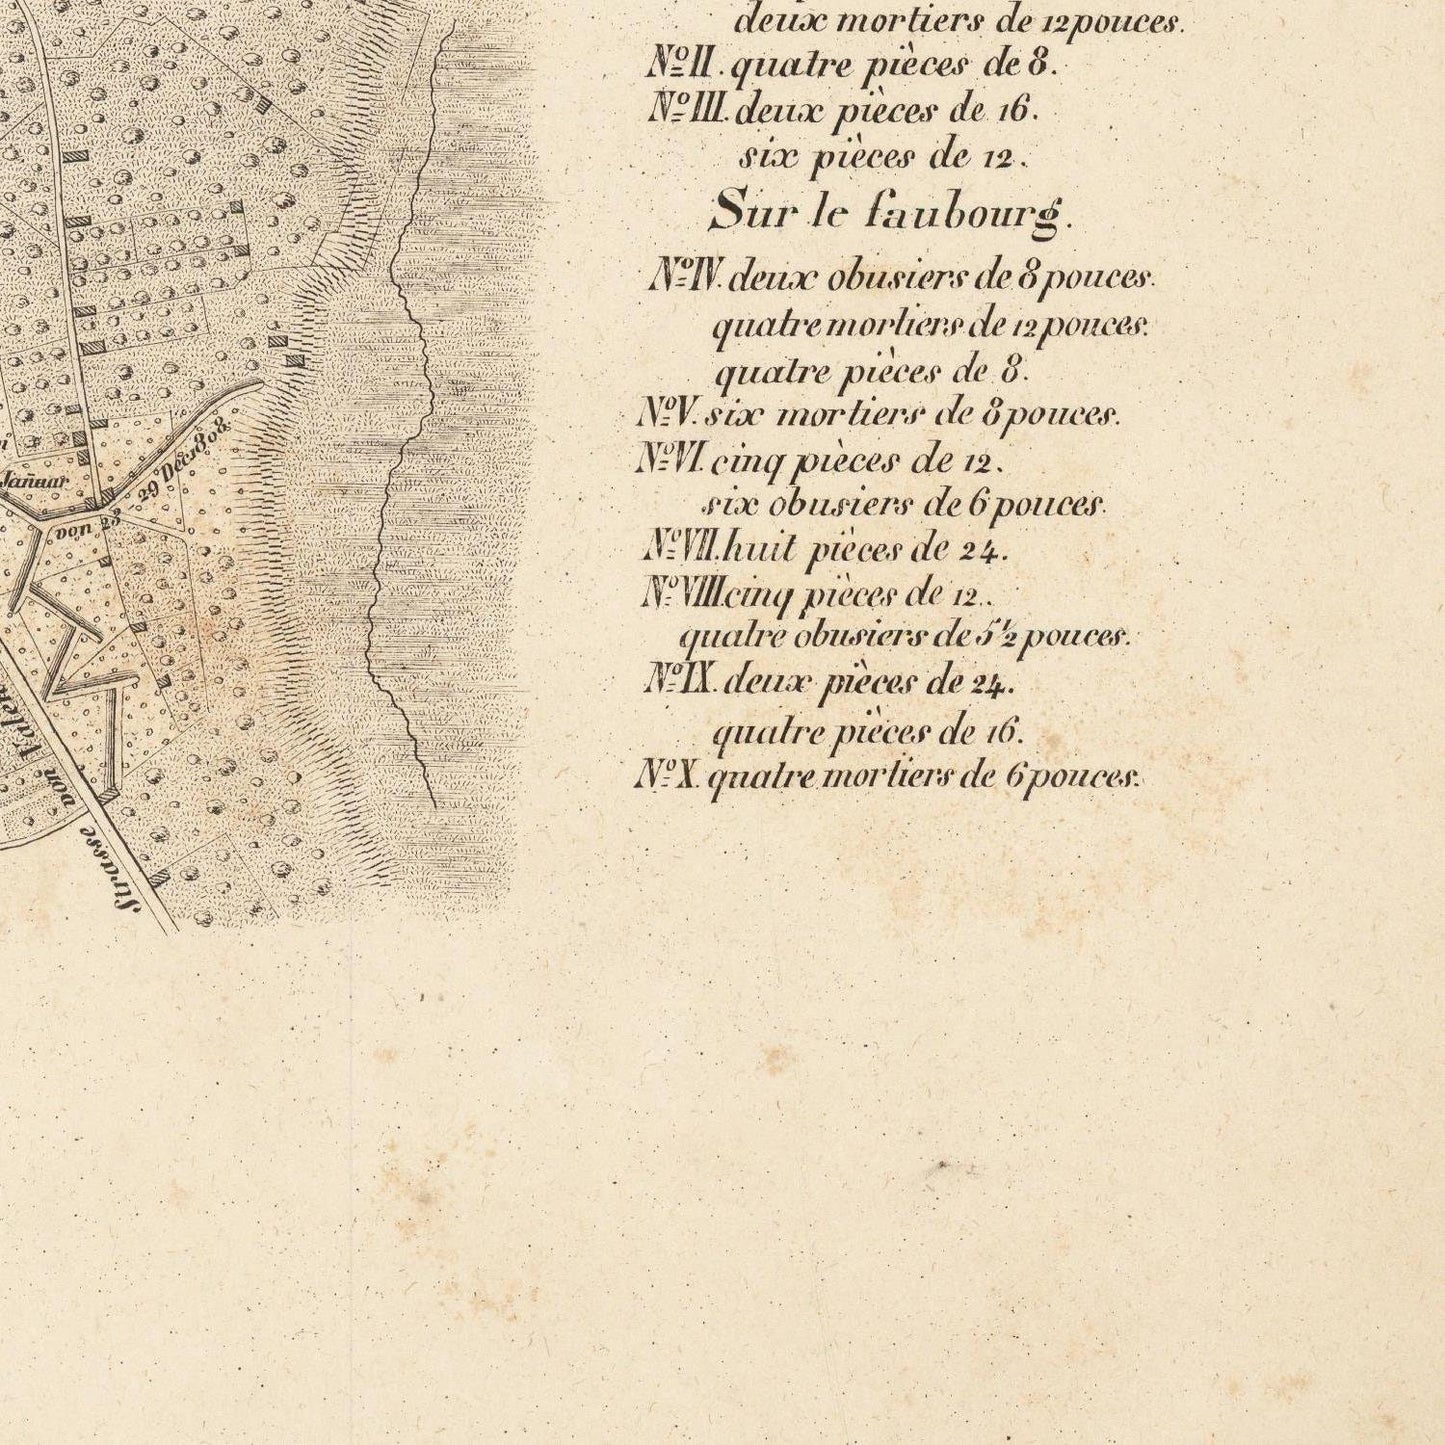 deux mortiers de 12 pouces.
No II. quatre pièces de 8.
No III. deux pièces de 16.
six pièces de 12.
Sur le faubourg.
No IV. deux obusiers de 8 pouces.
quatre mortiers de 12 pouces.
quatre pièces de 8.
No V. six mortiers de 8 pouces.
No VI. cinq pièces de 12.
six obusiers de 6 pouces.
No VII. huit pièces de 24.
No VIII. cinq pièces de 12.
quatre obusiers de 5 1/2 pouces.
No IX. deux pièces de 24.
quatre pièces de 16.
No X. quatre mortiers de 6 pouces.
29 Dec. 1808.
Januar
von 23
Strasse von